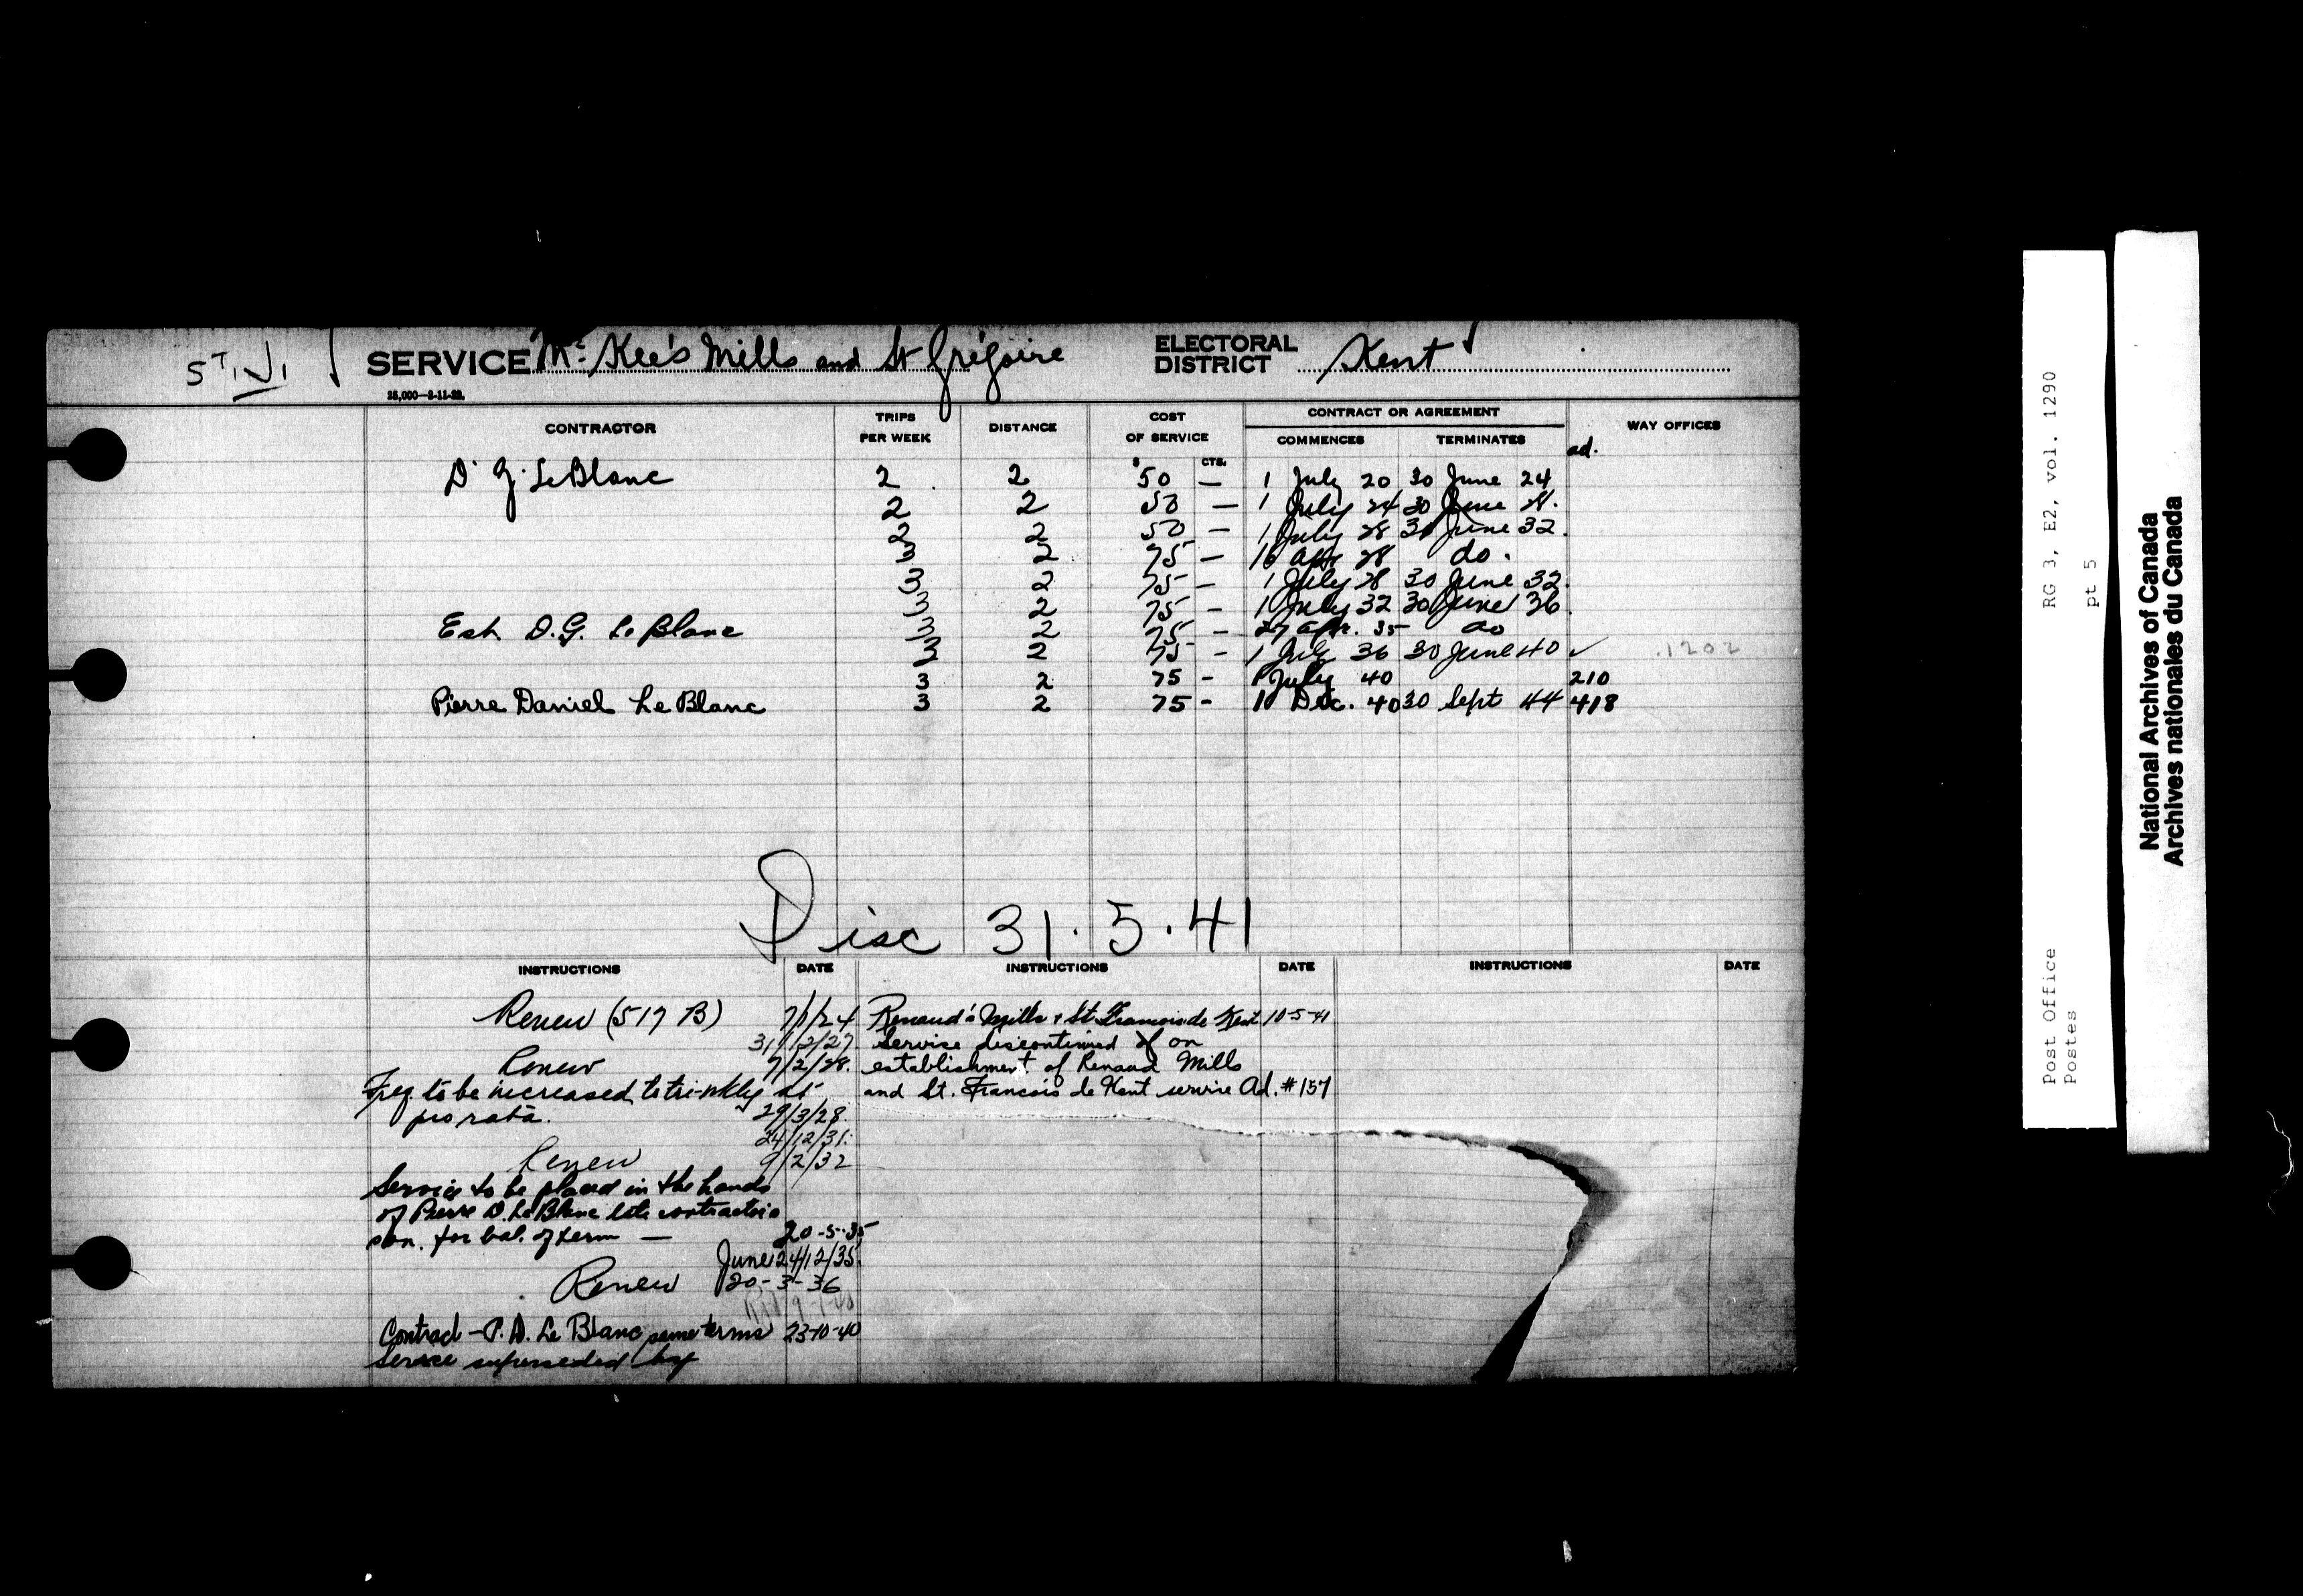 ST. J.
SERVICE Mc Kee's Mills and St Grégoire ELECTORAL DISTRICT Kent
25,000—2-11-22.
CONTRACTOR TRIPS PER WEEK DISTANCE COST OF SERVICE CONTRACT OR AGREEMENT WAY OFFICES
COMMENCES TERMINATES ad.
$ CTS.
D. G. LeBlanc 2 2 50 — 1 July 20 30 June 24
2 2 50 — 1 July 24 30 June 28.
2 2 50 — 1 July 28 30 June 32.
3 2 75 — 16 Apr 28 do.
3 2 75 — 1 July 28 30 June 32.
3 2 75 — 1 July 32 30 June 36.
Est. D. G. Le Blanc 3 2 75 — 27 Apr. 35 do
3 2 75 — 1 July 36 30 June 40 ✓ 1202
3 2 75 - 1 July 40 210
Pierre Daniel Le Blanc 3 2 75 - 1 Dec. 40 30 Sept 44 418
Disc 31.5.41
INSTRUCTIONS DATE INSTRUCTIONS DATE INSTRUCTIONS DATE
Renew (517 B) 7/1/24
31/12/27.
Renew 7/2/28.
Freq. to be increased to tri-wkly at
pro rata. 29/3/28.
24/12/31.
Renew 9/2/32
Service to be placed in the hands
of Pierre D. Le Blanc late contractor's
son. for bal. of term — 20-5-35
June 24/12/35.
Renew 20-3-36
Contract - P. D. Le Blanc same terms 23-10-40
Service superseded by
Renaud's Mills & St. Francois de Kent 10-5-41
Service discontinued on
establishment of Renaud Mills
and St. Francois de Kent service Ad. #157
Post Office RG 3, E2, vol. 1290
Postes pt 5
National Archives of Canada
Archives nationales du Canada